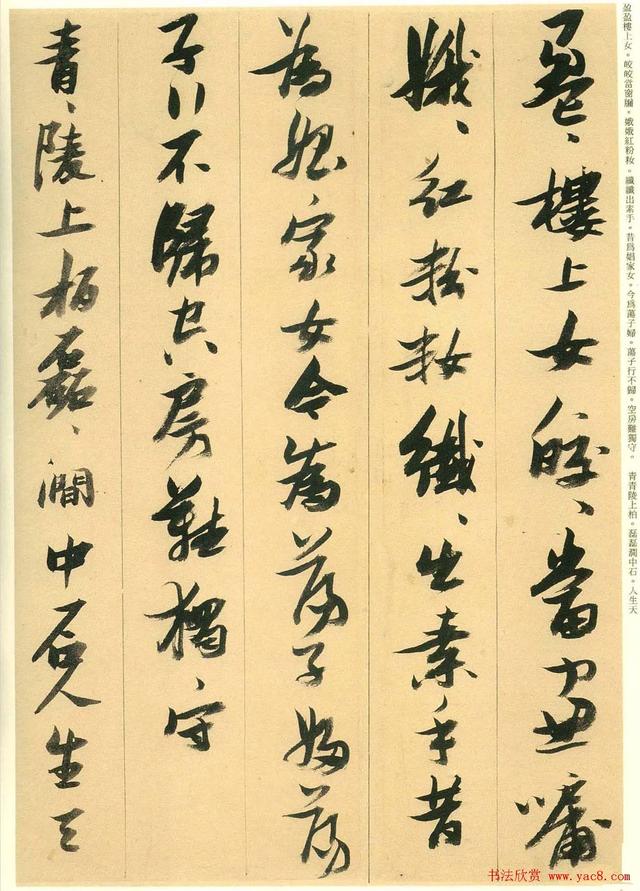 盈盈樓上女。皎皎當窗牖。娥娥紅粉籹。纖纖出素手。昔爲娼家女。今爲蕩子婦。蕩子行不歸。空房難獨守。 青青陵上柏。磊磊澗中石。人生天
盈、樓上女皎、當窗牖
娥、紅粉籹纖、出素手昔
為娼家女今為蕩子婦蕩
子行不歸空房難獨守
青、陵上柏磊、澗中石人生天
书法欣赏 www.yac8.com